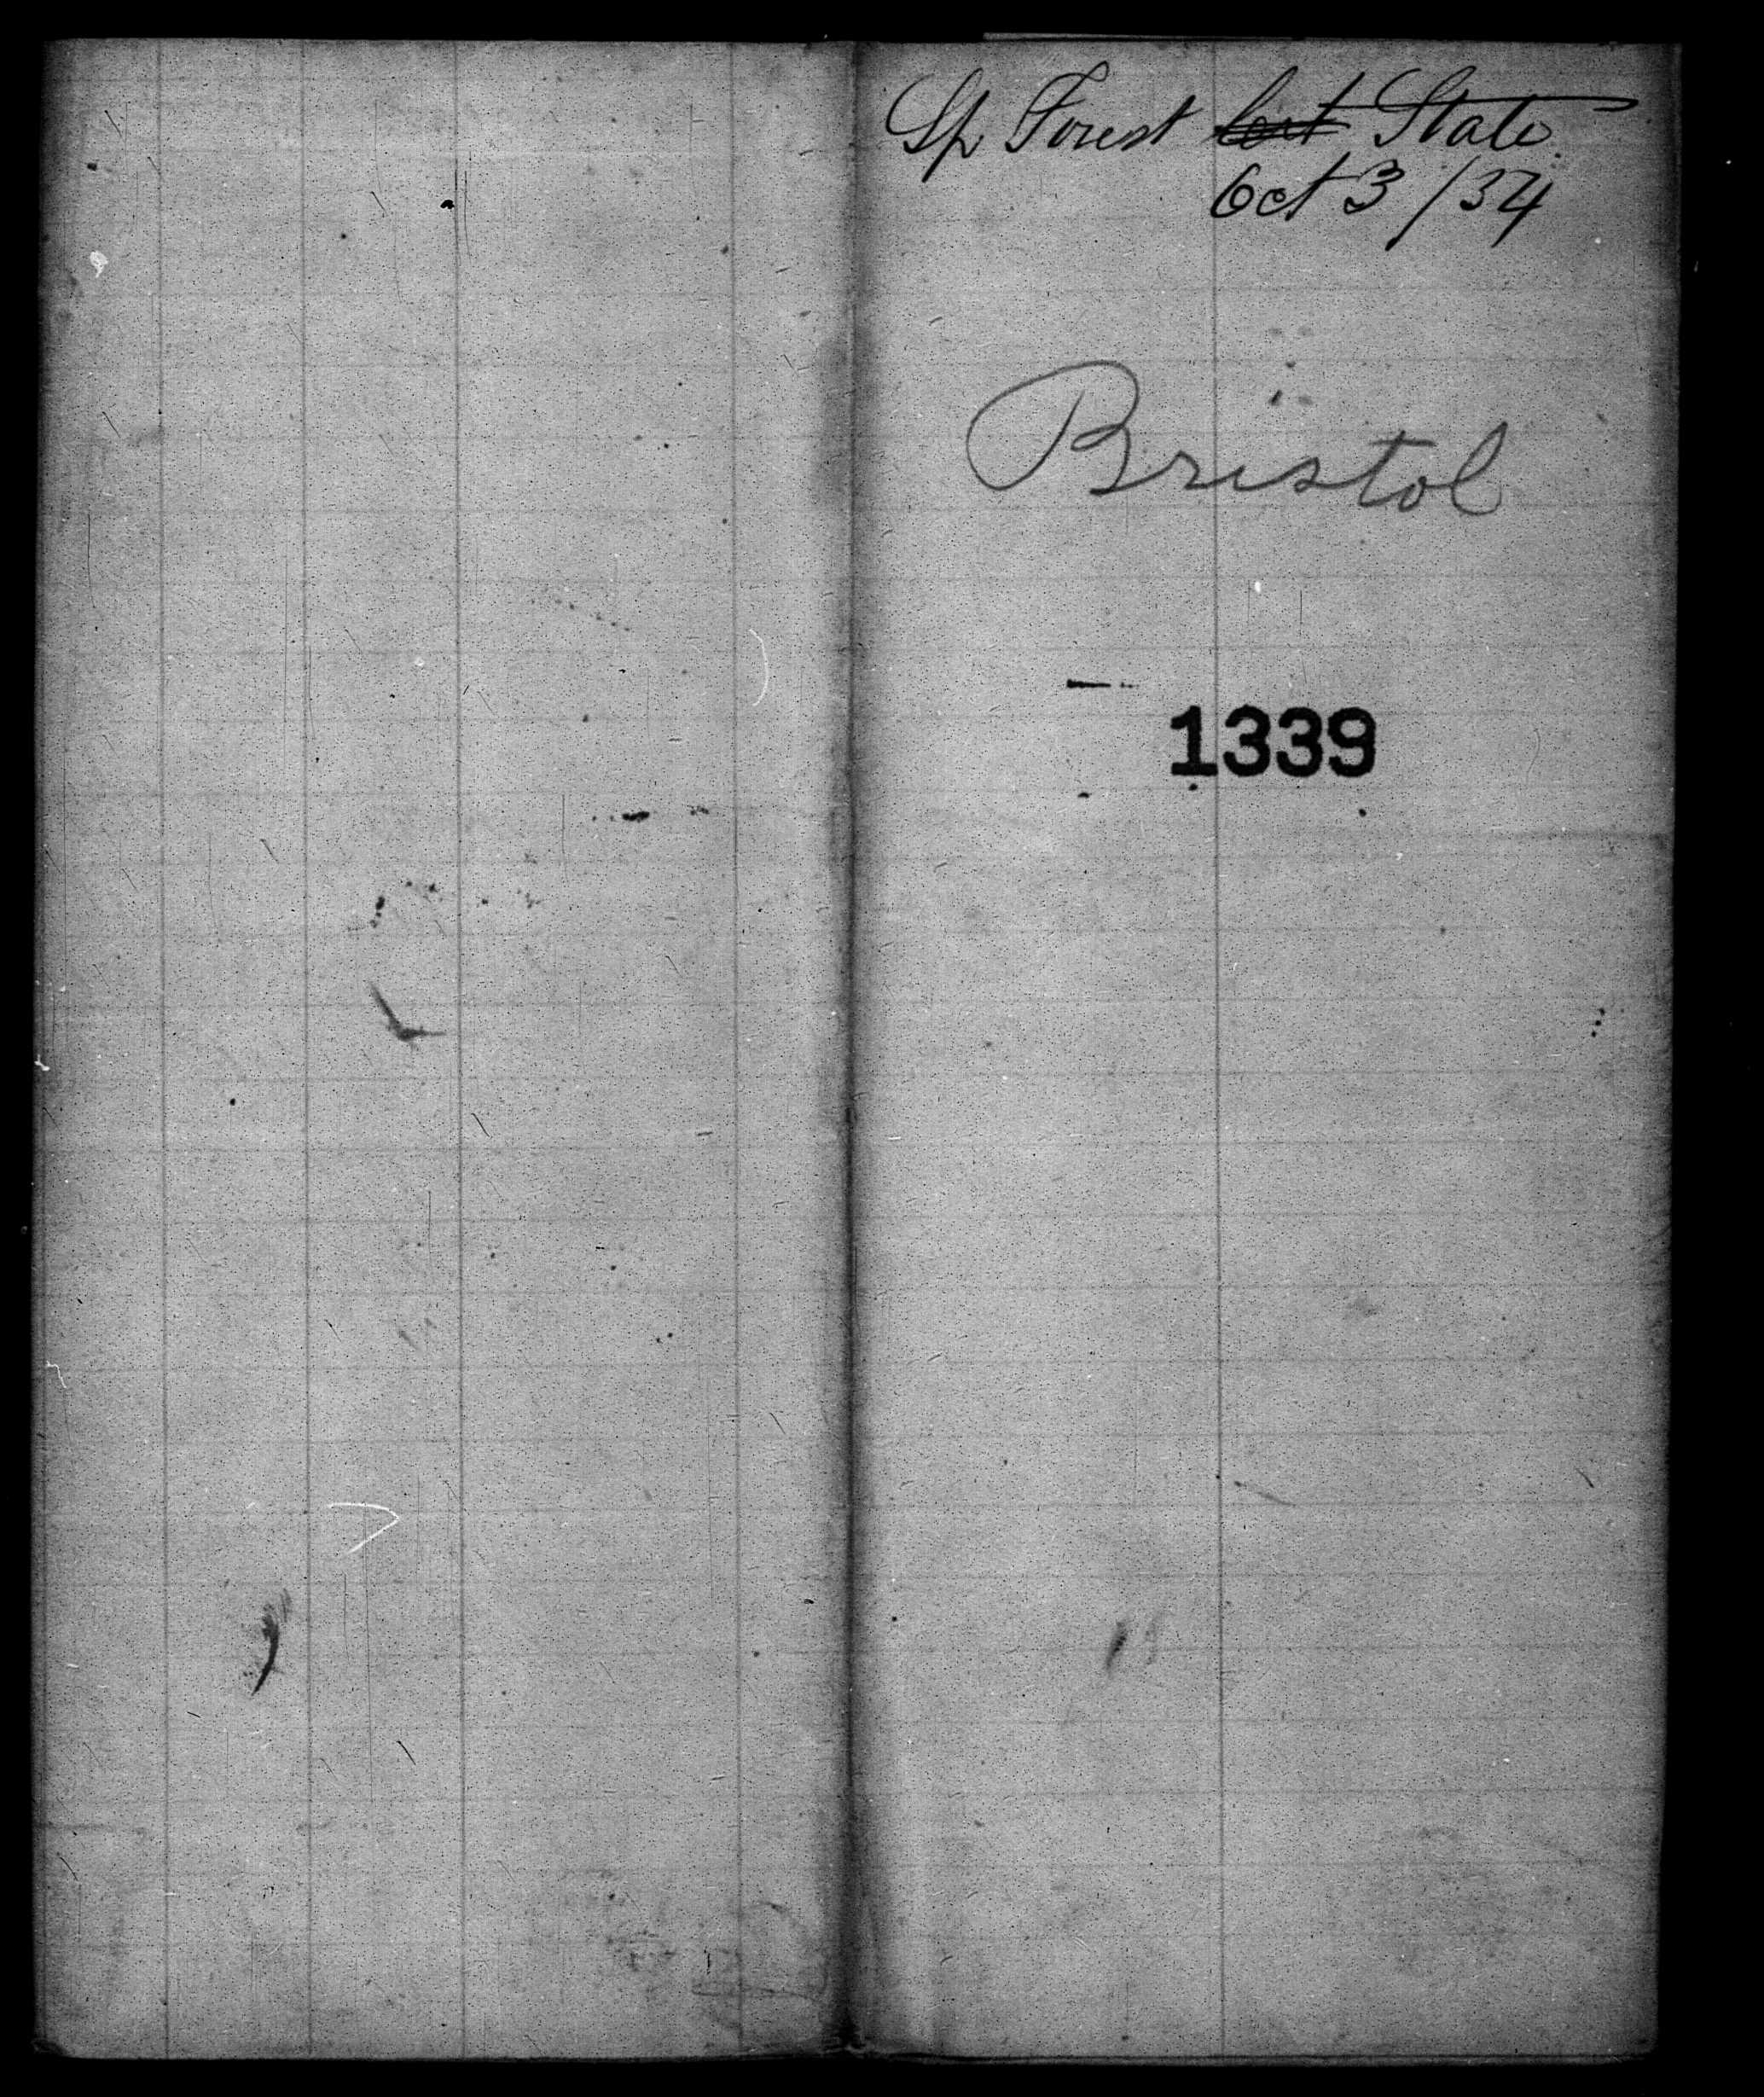 Sp Forest State
Oct 3/34
Bristol
1339